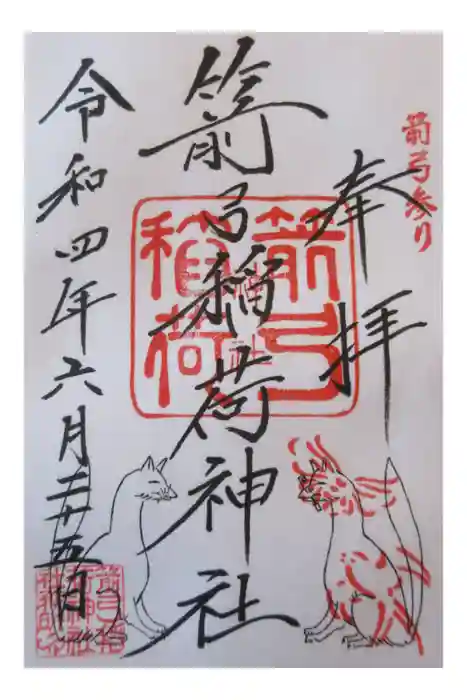 箭弓参り
奉拝
箭弓稲荷神社
箭弓稲荷神社
令和四年六月二十五日